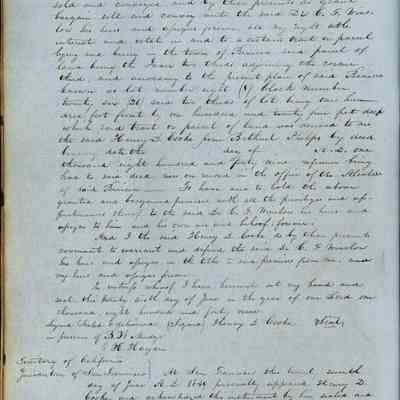 sold and conveyed and by these presents do grant
bargain sell and convey unto the said D. C. F. Wins-
low his heirs and assigns forever all my right title
interest and estate in and to a certain tract or parcel
lying and being in the town of Benicia said parcel of
land being the two thirds adjoining the corner
third, and according to the present plan of said Benicia
known as lot number eight (8) block number
twenty six 26 said two thirds of lot being one hun-
dred feet front by one hundred and twenty five feet deep
which said tract or parcel of land was deeded to me
the said Henry D. Cooke from Bethuel Phelps by deed
bearing date the day of A.D. one
thousand eight hundred and forty nine reference being
had to said deed now on record in the office of the Alcalde
of said Benicia To have and to hold the above
granted and bargained premises with all the privileges and ap-
purtenances thereof to the said D. C. F. Winslow his heirs and
assigns to him and his own use and behoof forever.
And I the said Henry D. Cooke do by these presents
covenant to warrant and defend the said D. C. F. Winslow
his heirs and assigns in the title to said premises from me, and
my heirs and assigns forever.
In witness whereof I have hereunto set my hand and
seal this tenth day of June in the year of our Lord one
thousand eight hundred and forty nine
Signed Sealed & delivered (Signed) Henry D. Cooke (Seal)
in presence of
Territory of California
San Francisco At San Francisco this tenth
day of June A.D. 1849 personally appeared Henry D.
Cooke and acknowledged this instrument by him sealed and